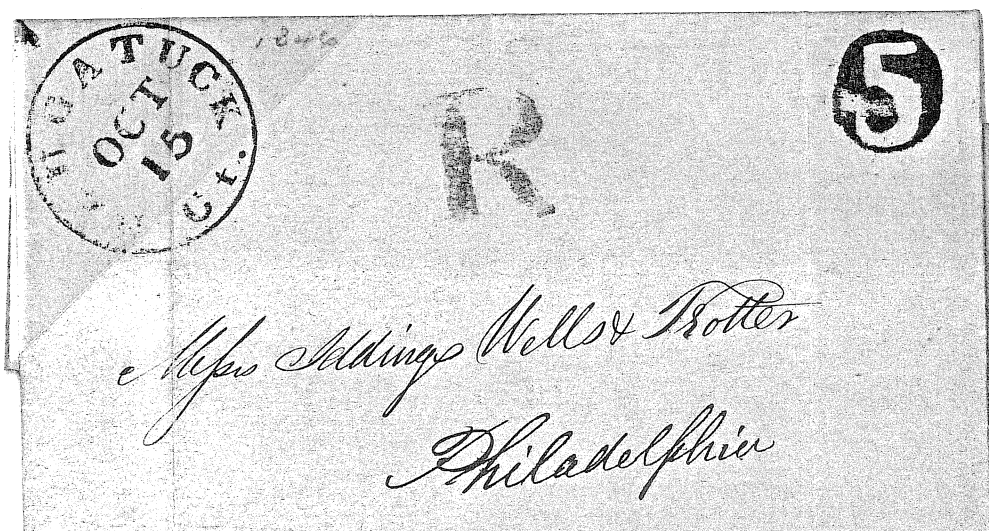 NAUGATUCK Ct.
OCT
15
R
5
Messrs Iddings Wells & Trotter
Philadelphia